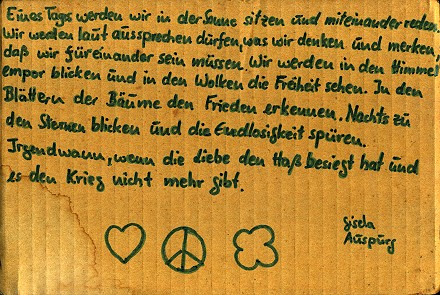 Eines Tags werden wir in der Sonne sitzen und miteinander reden.
Wir werden laut aussprechen dürfen, was wir denken und merken,
daß wir füreinander sein müssen. Wir werden in den Himmel
empor blicken und in den Wolken die Freiheit sehen. In den
Blättern der Bäume den Frieden erkennen. Nachts zu
den Sternen blicken und die Endlosigkeit spüren.
Irgendwann, wenn die Liebe den Haß besiegt hat und
es den Krieg nicht mehr gibt.
Gisela
Auspurg